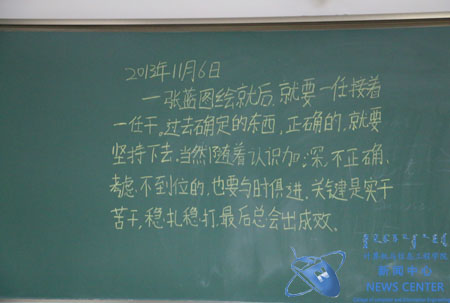 2013年11月6日
一张蓝图绘就后,就要一任接着
一任干。过去确定的东西,正确的,就要
坚持下去。当然随着认识加深,不正确、
考虑不到位的,也要与时俱进,关键是实干
苦干,稳扎稳打,最后总会出成效。
计算机与信息工程学院
新闻中心
NEWS CENTER